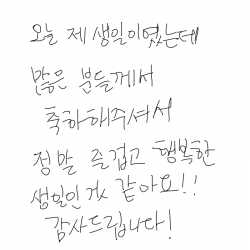 오늘 제 생일이였는데
많은 분들께서
축하해주셔서
정말 즐겁고 행복한
생일인거 같아요!!
감사드립니다!